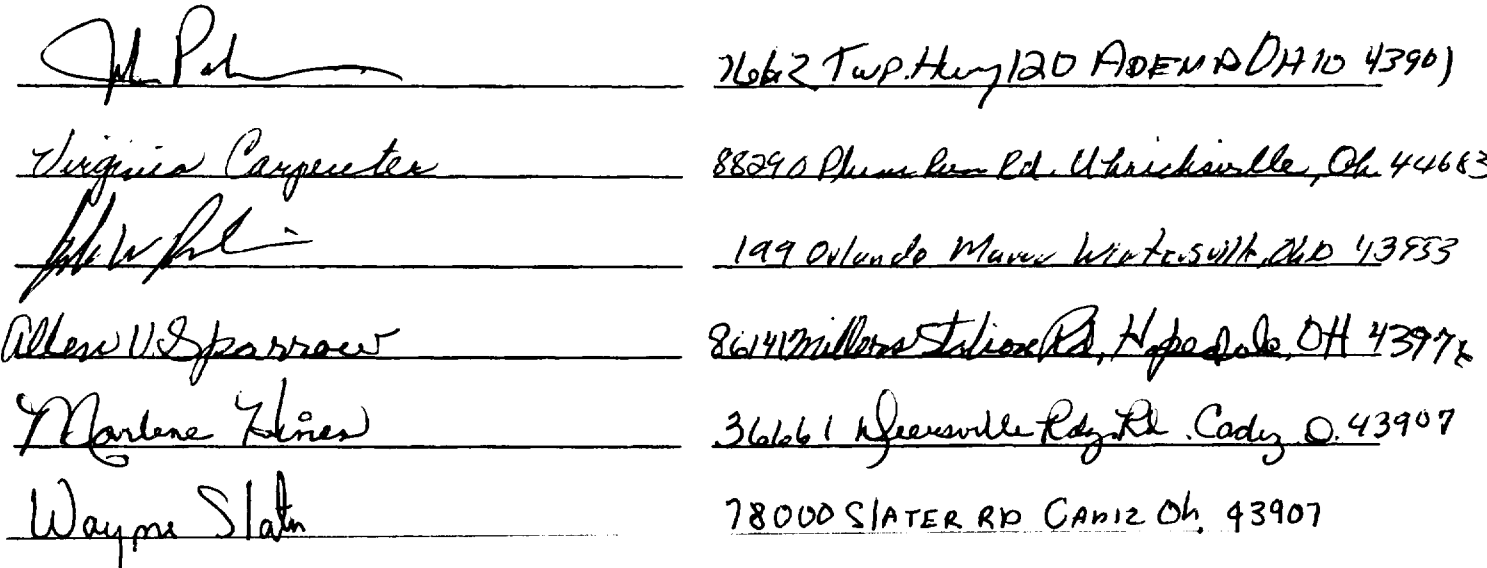 John 7662 Twp. Hwy 120 ADENA OHIO 43901
Virginia Carpenter 88290 Plum Run Rd. Uhrichsville, Oh 44683
199 Orlando Manor Wintersville, Ohio 43953
Allen V. Sparrow 86141 Millers Station Rd, Hopedale, OH 43976
Marlene Hines 36661 Deersville Rdg. Rd. Cadiz O. 43907
Wayne Slater 78000 SLATER RD CADIZ Oh. 43907